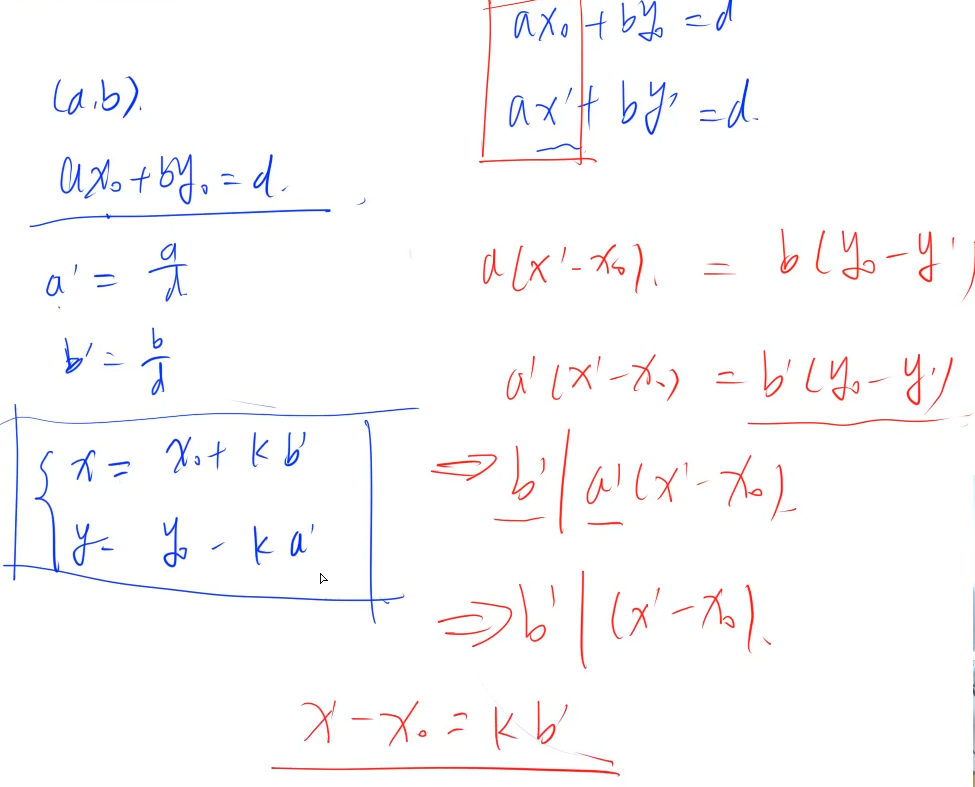 (a,b).
ax₀+by₀=d.
a'=a/d
b'=b/d
{x=x₀+kb'
y=y₀-ka'
ax₀+by₀=d
ax'+by'=d.
a(x'-x₀).=b(y₀-y')
a'(x'-x₀)=b'(y₀-y')
⇒b'|a'(x'-x₀)
⇒b'|(x'-x₀).
x'-x₀=kb'